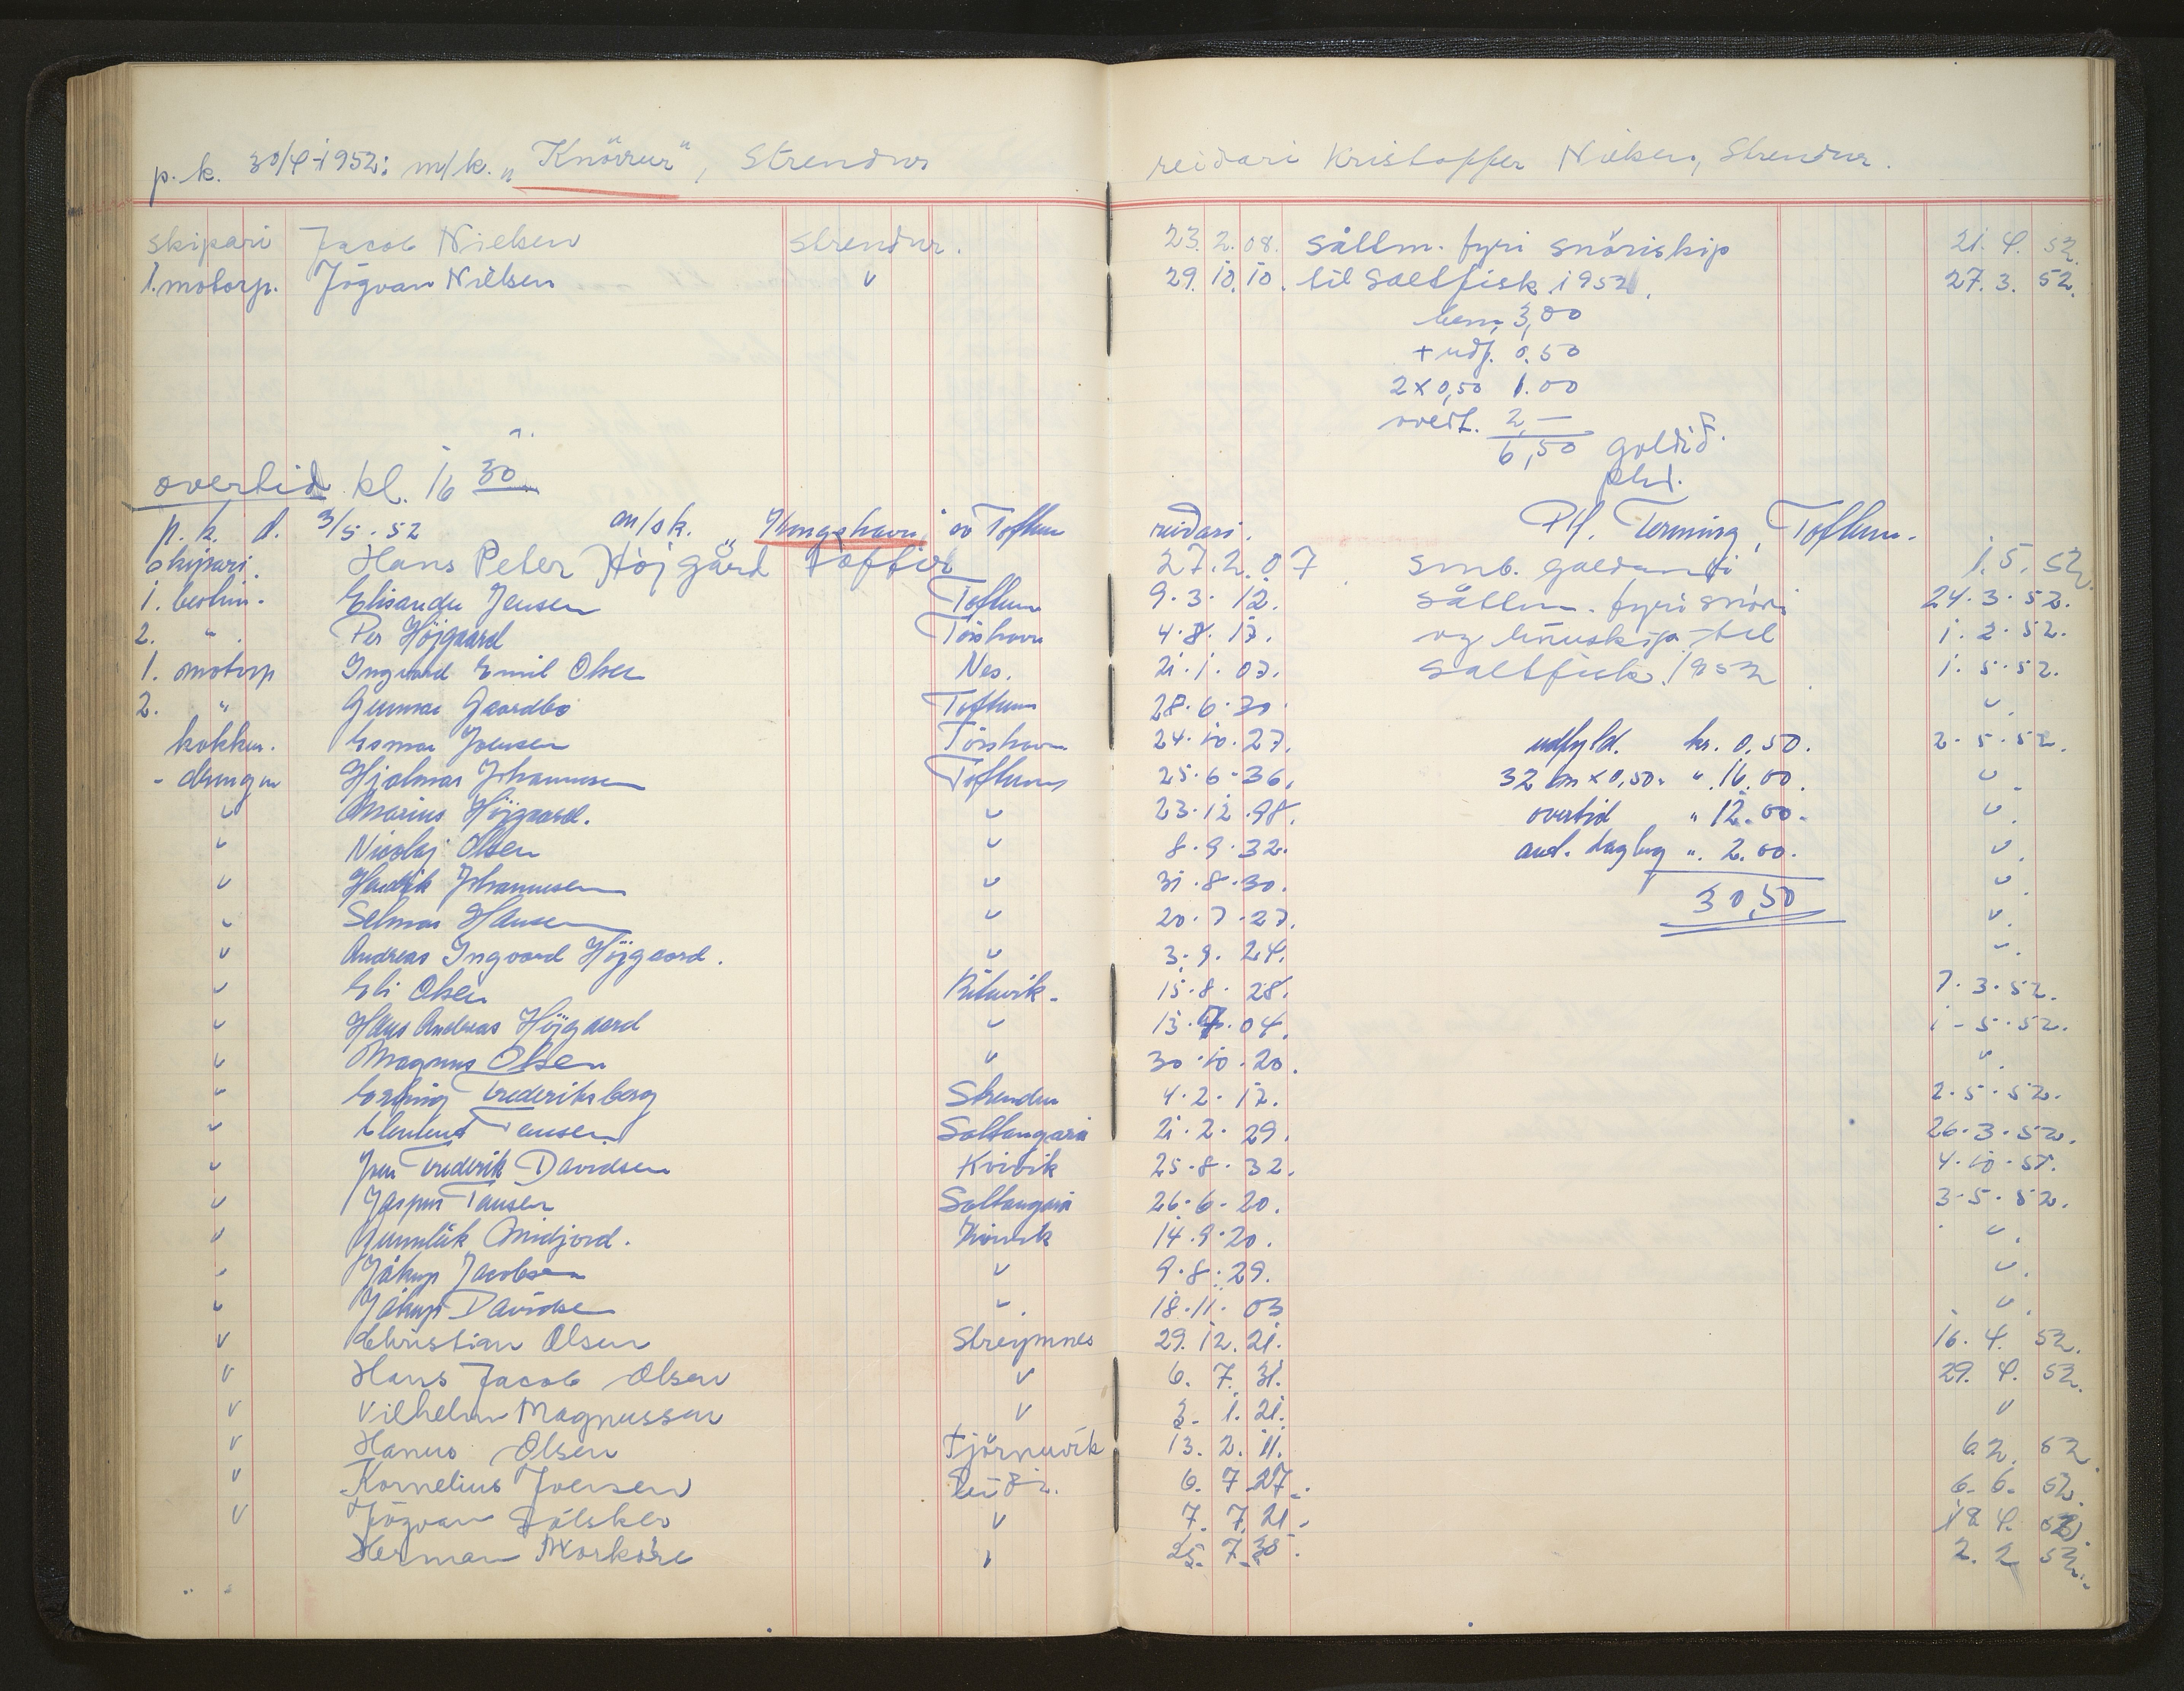 p. k. 30/4-1952: m/k. „Knörrur", Strendur reidari Kristoffer Nielsen, Strendur.
skipari Jacob Nielsen Strendur. 23. 2. 08. sållm. fyri snöriskip 21. 4. 52.
1. motorp. Jógvan Nielsen " 29. 10. 10. til saltfisk 1952. 27. 3. 52.
3,00
+ udf. 0.50
2 x 0,50 1.00
2,—
6,50 goldid.
overtid kl. 16 30
p. k. d. 3/5.52 m/sk. „Kongshavn" av Toftum reidari. P/f. Terming, Toftum.
skipari. Hans Peter Höjgård Toftir 27. 2. 07 smb. galdandi 1. 5. 52.
1. bestm. Elisander Jensen Toftum 9. 3. 12. sållm. fyri snöri 24. 3. 52.
2. " . Per Höjgaard Tórshavn 4. 8. 17. og línuskip til 1. 2. 52.
1. motorp Ingvard Emil Olsen Nes. 21. 1. 07. saltfisk 1952. 1. 5. 52.
2. " Gunnar Gaardbo Toftum 28. 6. 30 "
kokkur. Esmar Joensen Tórshavn 24. 10. 27. udfyld. kr. 0,50. 2. 5. 52.
- drungur Hjalmar Johannesen Toftum 25. 6. 36. 32 km x 0,50. " 16.00. "
" Marius Höjgaard. " 23. 12. 98. overtid " 12.00. "
" Nicolaj Olsen " 8. 9. 32. " 2.00. "
" Hendrik Johannesen " 31. 8. 30. 30,50 "
" Selmar Hansen " 20. 7. 27. "
" Andreas Ingvard Höjgaard. " 3. 9. 24. "
" Eli Olsen Rituvik. 15. 8. 28. 7. 3. 52.
" Hans Andreas Höjgaard " 13. 04. 1. 5. 52.
" Magnus Olsen " 30. 10. 20. "
" Erling Frederiksberg Strendur 4. 2. 17. 2. 5. 52.
" Hansen Saltangará 21. 2. 29. 26. 3. 52.
" Jens Frederik Davidsen Kvívík 25. 8. 32. 4. 10. 51.
" Jaspur Hansen Saltangará 26. 6. 20. 3. 5. 52.
" Gunnleik Midjord. Kvívík 14. 9. 20. "
" Jákup Jacobsen " 9. 8. 29. "
" Jákup Davidsen " 18. 11. 03 "
" Christian Olsen Streymnes 29. 12. 21. 16. 4. 52.
" Hans Jacob Olsen " 6. 7. 31. 29. 4. 52.
" Vilhelm Magnussen " 3. 1. 21. "
" Hanus Olsen Tjörnuvík 13. 2. 11. 6. 2. 52.
" Kornelius Joensen 6. 7 27. 6. 6. 52.
" Jógvan " 7. 7. 21. 18. 4. 52.
Herman Morkøre " 25. 7. 2. 2 52.